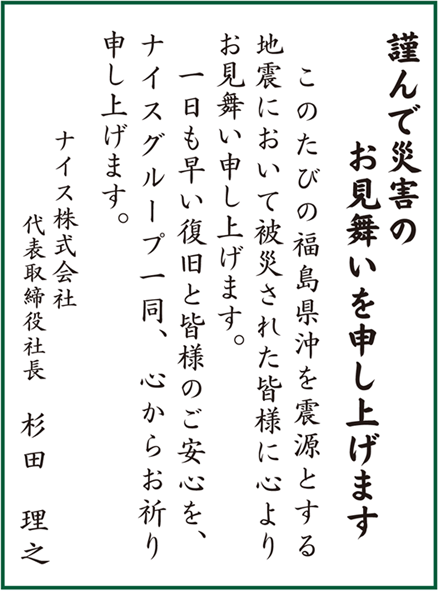 謹んで災害の
お見舞いを申し上げます
このたびの福島県沖を震源とする
地震において被災された皆様に心より
お見舞い申し上げます。
一日も早い復旧と皆様のご安心を、
ナイスグループ一同、心からお祈り
申し上げます。
ナイス株式会社
代表取締役社長 杉田 理之